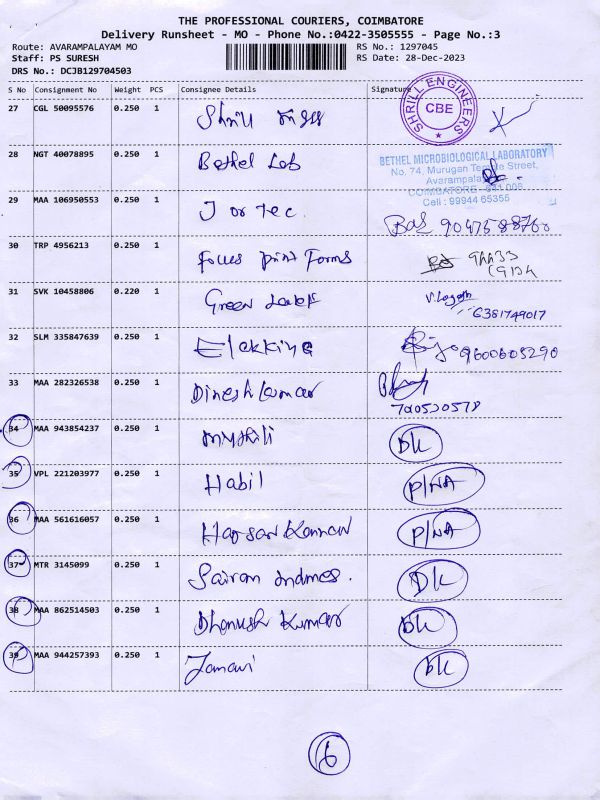 THE PROFESSIONAL COURIERS, COIMBATORE
Delivery Runsheet - MO - Phone No.:0422-3505555 - Page No.:3
Route: AVARAMPALAYAM MO RS No.: 1297045
Staff: PS SURESH RS Date: 28-Dec-2023
DRS No.: DCJB129704503
S No Consignment No Weight PCS Consignee Details Signature
27 CGL 50095576 0.250 1
SHRILL ENGINEERS
CBE
28 NGT 40078895 0.250 1 Bethel Lab
BETHEL MICROBIOLOGICAL LABORATORY
No. 74, Murugan Temple Street,
Avarampalayam
COIMBATORE - 641 006
Cell : 99944 65355
29 MAA 106950553 0.250 1 J or tec
30 TRP 4956213 0.250 1 Focus print Forms
31 SVK 10458806 0.220 1 Green
6381749017
32 SLM 335847639 0.250 1 Elekking 9600605290
33 MAA 282326538 0.250 1 Dinesh kumar
34 MAA 943854237 0.250 1 DK
35 VPL 221203977 0.250 1 Habil P/NA
36 MAA 561616057 0.250 1 P/NA
37 MTR 3145099 0.250 1 Sairam DK
38 MAA 862514503 0.250 1 Dhanush Kumar DK
39 MAA 944257393 0.250 1 DK
6